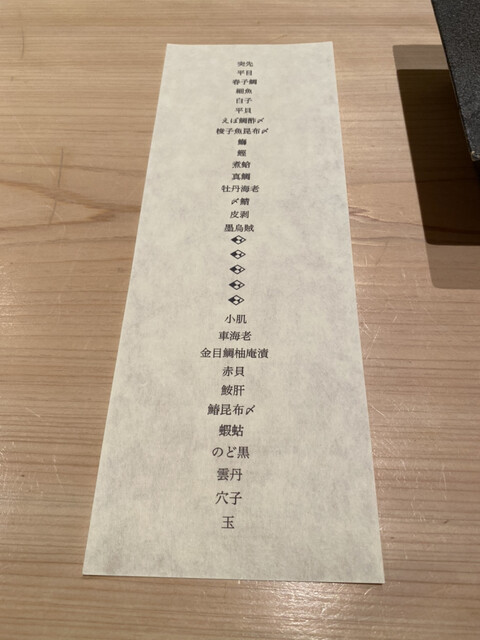 突先
平目
春子鯛
細魚
白子
平貝
えぼ鯛酢〆
梭子魚昆布〆
鰤
鰹
煮蛤
真鯛
牡丹海老
〆鯖
皮剥
墨烏賊
小肌
車海老
金目鯛柚庵漬
赤貝
鮟肝
鰆昆布〆
蝦蛄
のど黒
雲丹
穴子
玉